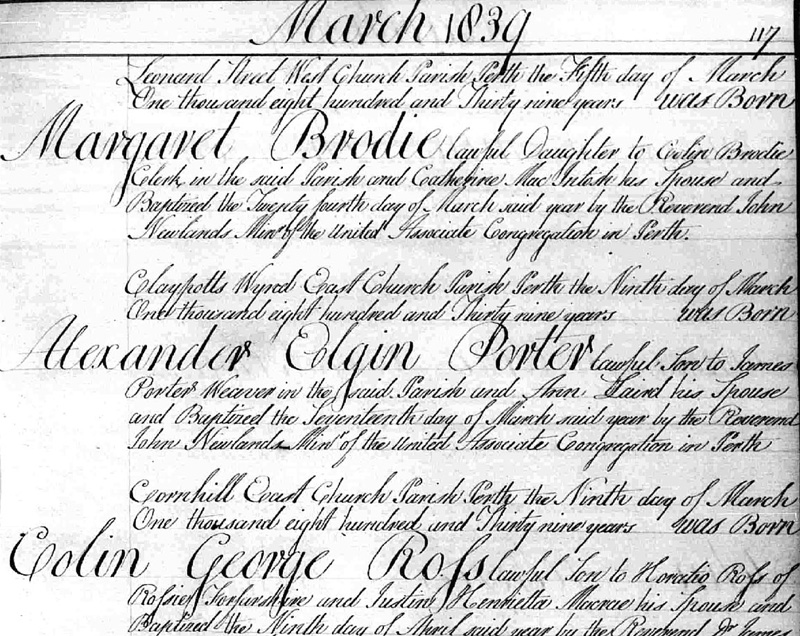 March 1839
117
Leonard Street West Church Parish Perth the Fifth day of March
One thousand eight hundred and Thirty nine years was Born
Margaret Brodie lawful Daughter to Colin Brodie
Clerk in the said Parish and Catherine Mac Intosh his Spouse and
Baptized the Twenty fourth day of March said year by the Reverend John
Newlands Minr of the United Associate Congregation in Perth.
Claypotts Wynd East Church Parish Perth the Ninth day of March
One thousand eight hundred and Thirty nine years was Born
Alexander Elgin Porter lawful Son to James
Porter Weaver in the said Parish and Ann Laird his Spouse
and Baptized the Seventeenth day of March said year by the Reverend
John Newlands Minr of the United Associate Congregation in Perth
Cornhill East Church Parish Perth the Ninth day of March
One thousand eight hundred and Thirty nine years was Born
Colin George Ross lawful Son to Horatio Ross of
Rossie Forfarshire and Justine Henrietta Macrae his Spouse and
Baptized the Ninth day of April said year by the Reverend Dr James